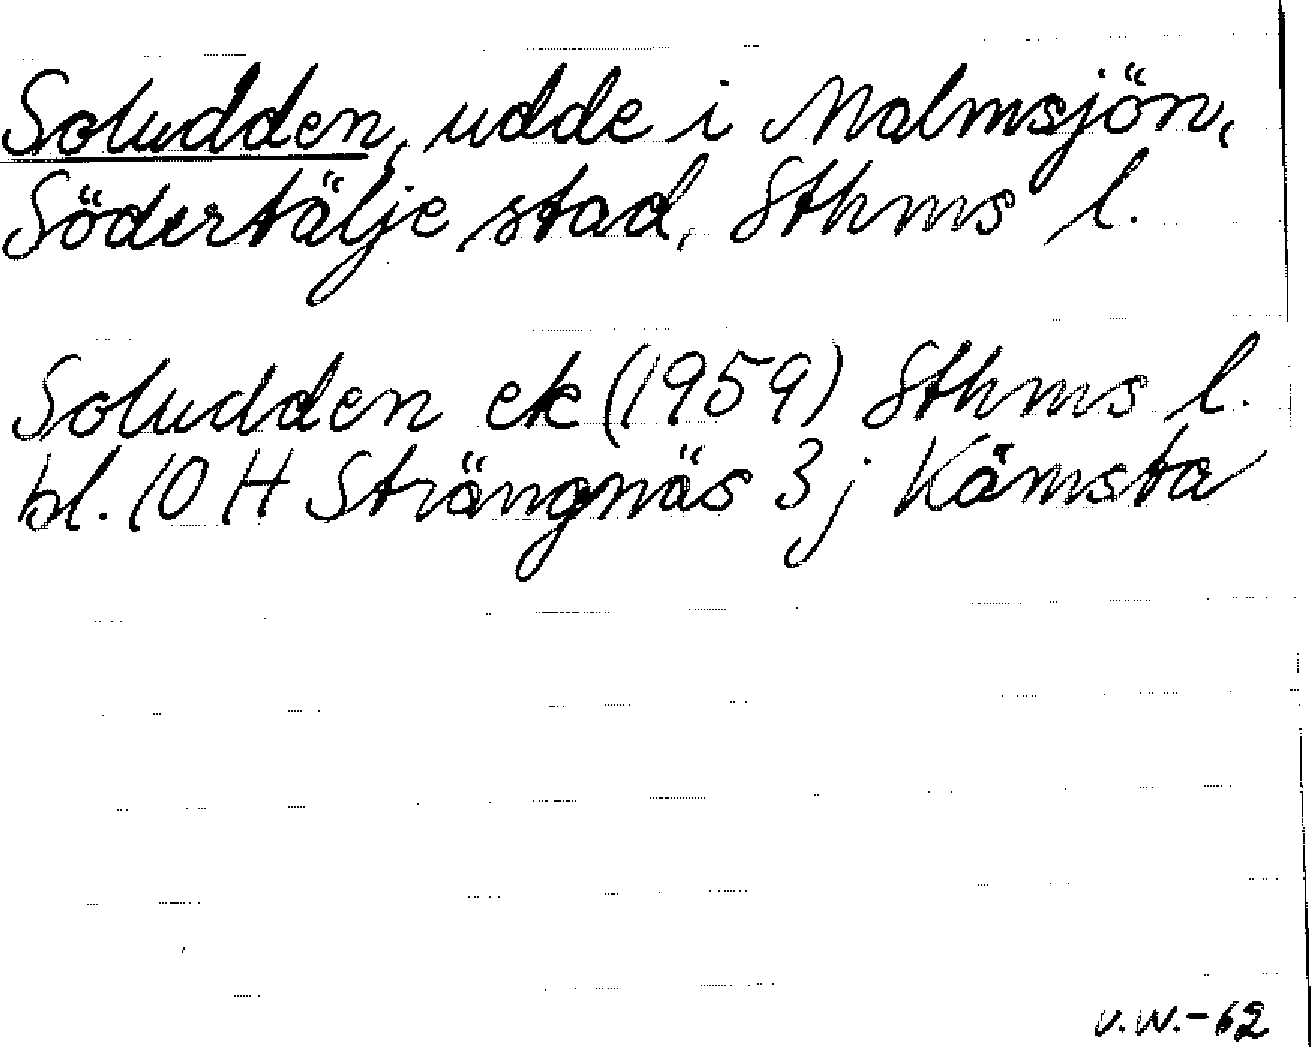 Soludden, udde i Malmsjön,
Södertälje stad, Sthms l.
Soludden ek (1959) Sthms l.
bl. 10 H Strängnäs 3 j Kämsta
v.w.-62